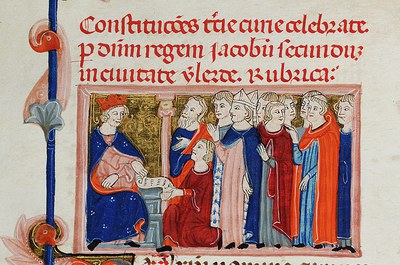 Constitucões t̃cie curie celebrate.
p dñm regem Jacobũ secunduz
in ciuitate ylerde. Rubrica: